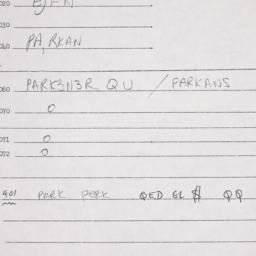 020 EJFN
030
040 PA,RKAN
060 PARK3N3R QU / PARKANS
070 0
071 0
072 0
901 PARK PERK QED GL $ QQ